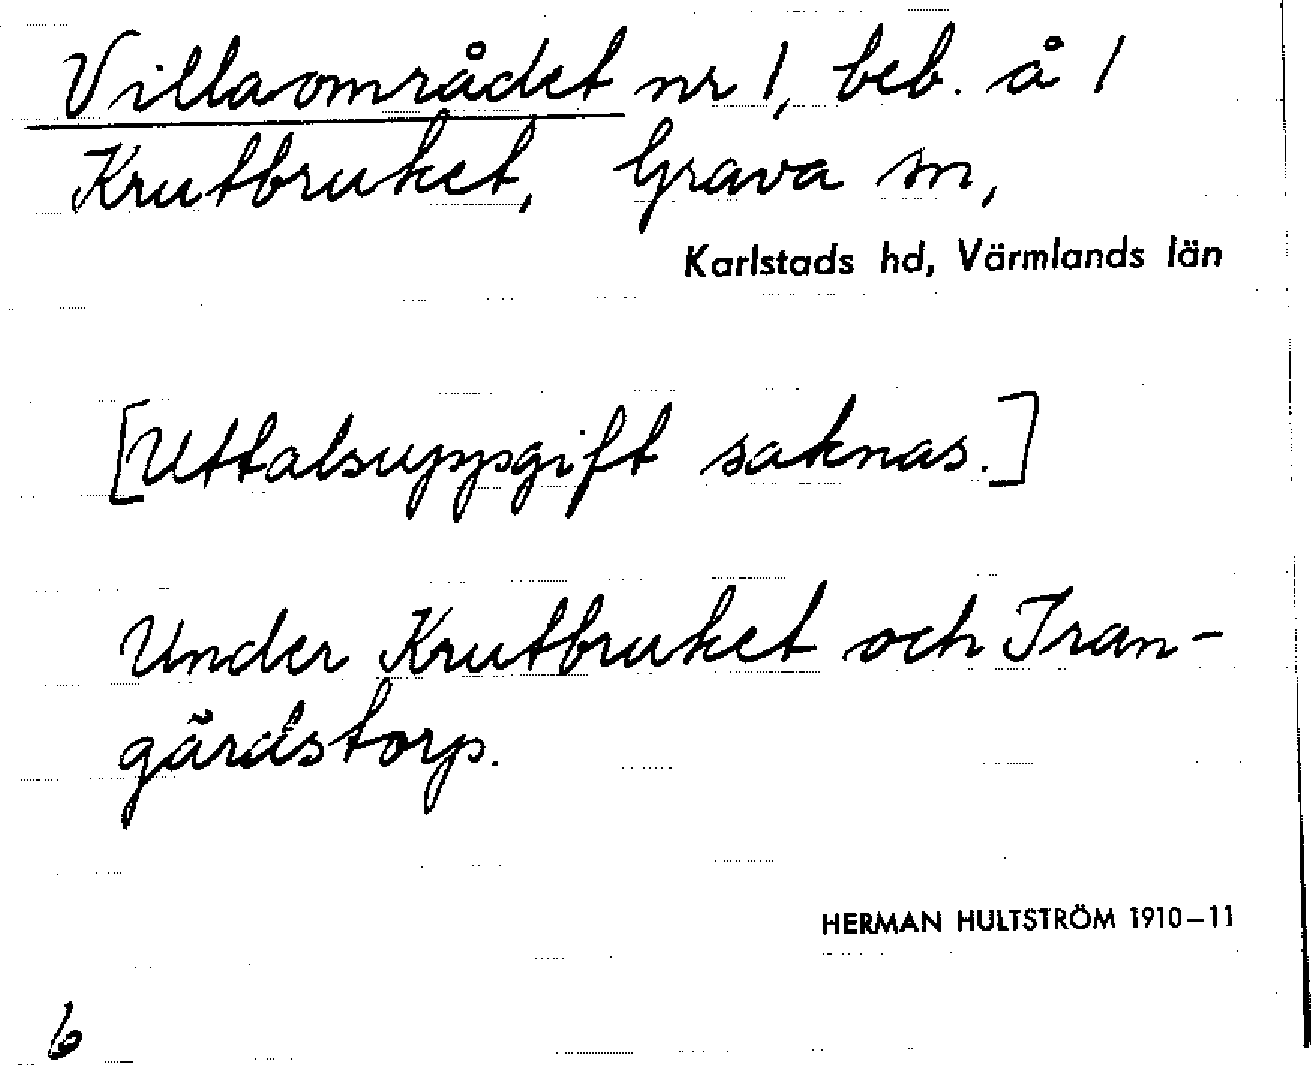 Villaområdet nr 1, beb. å 1
Krutbruket, Grava sn,
Karlstads hd, Värmlands län
[Uttalsuppgift saknas.]
Under Krutbruket och Tran-
gärdstorp.
HERMAN HULTSTRÖM 1910–11
6